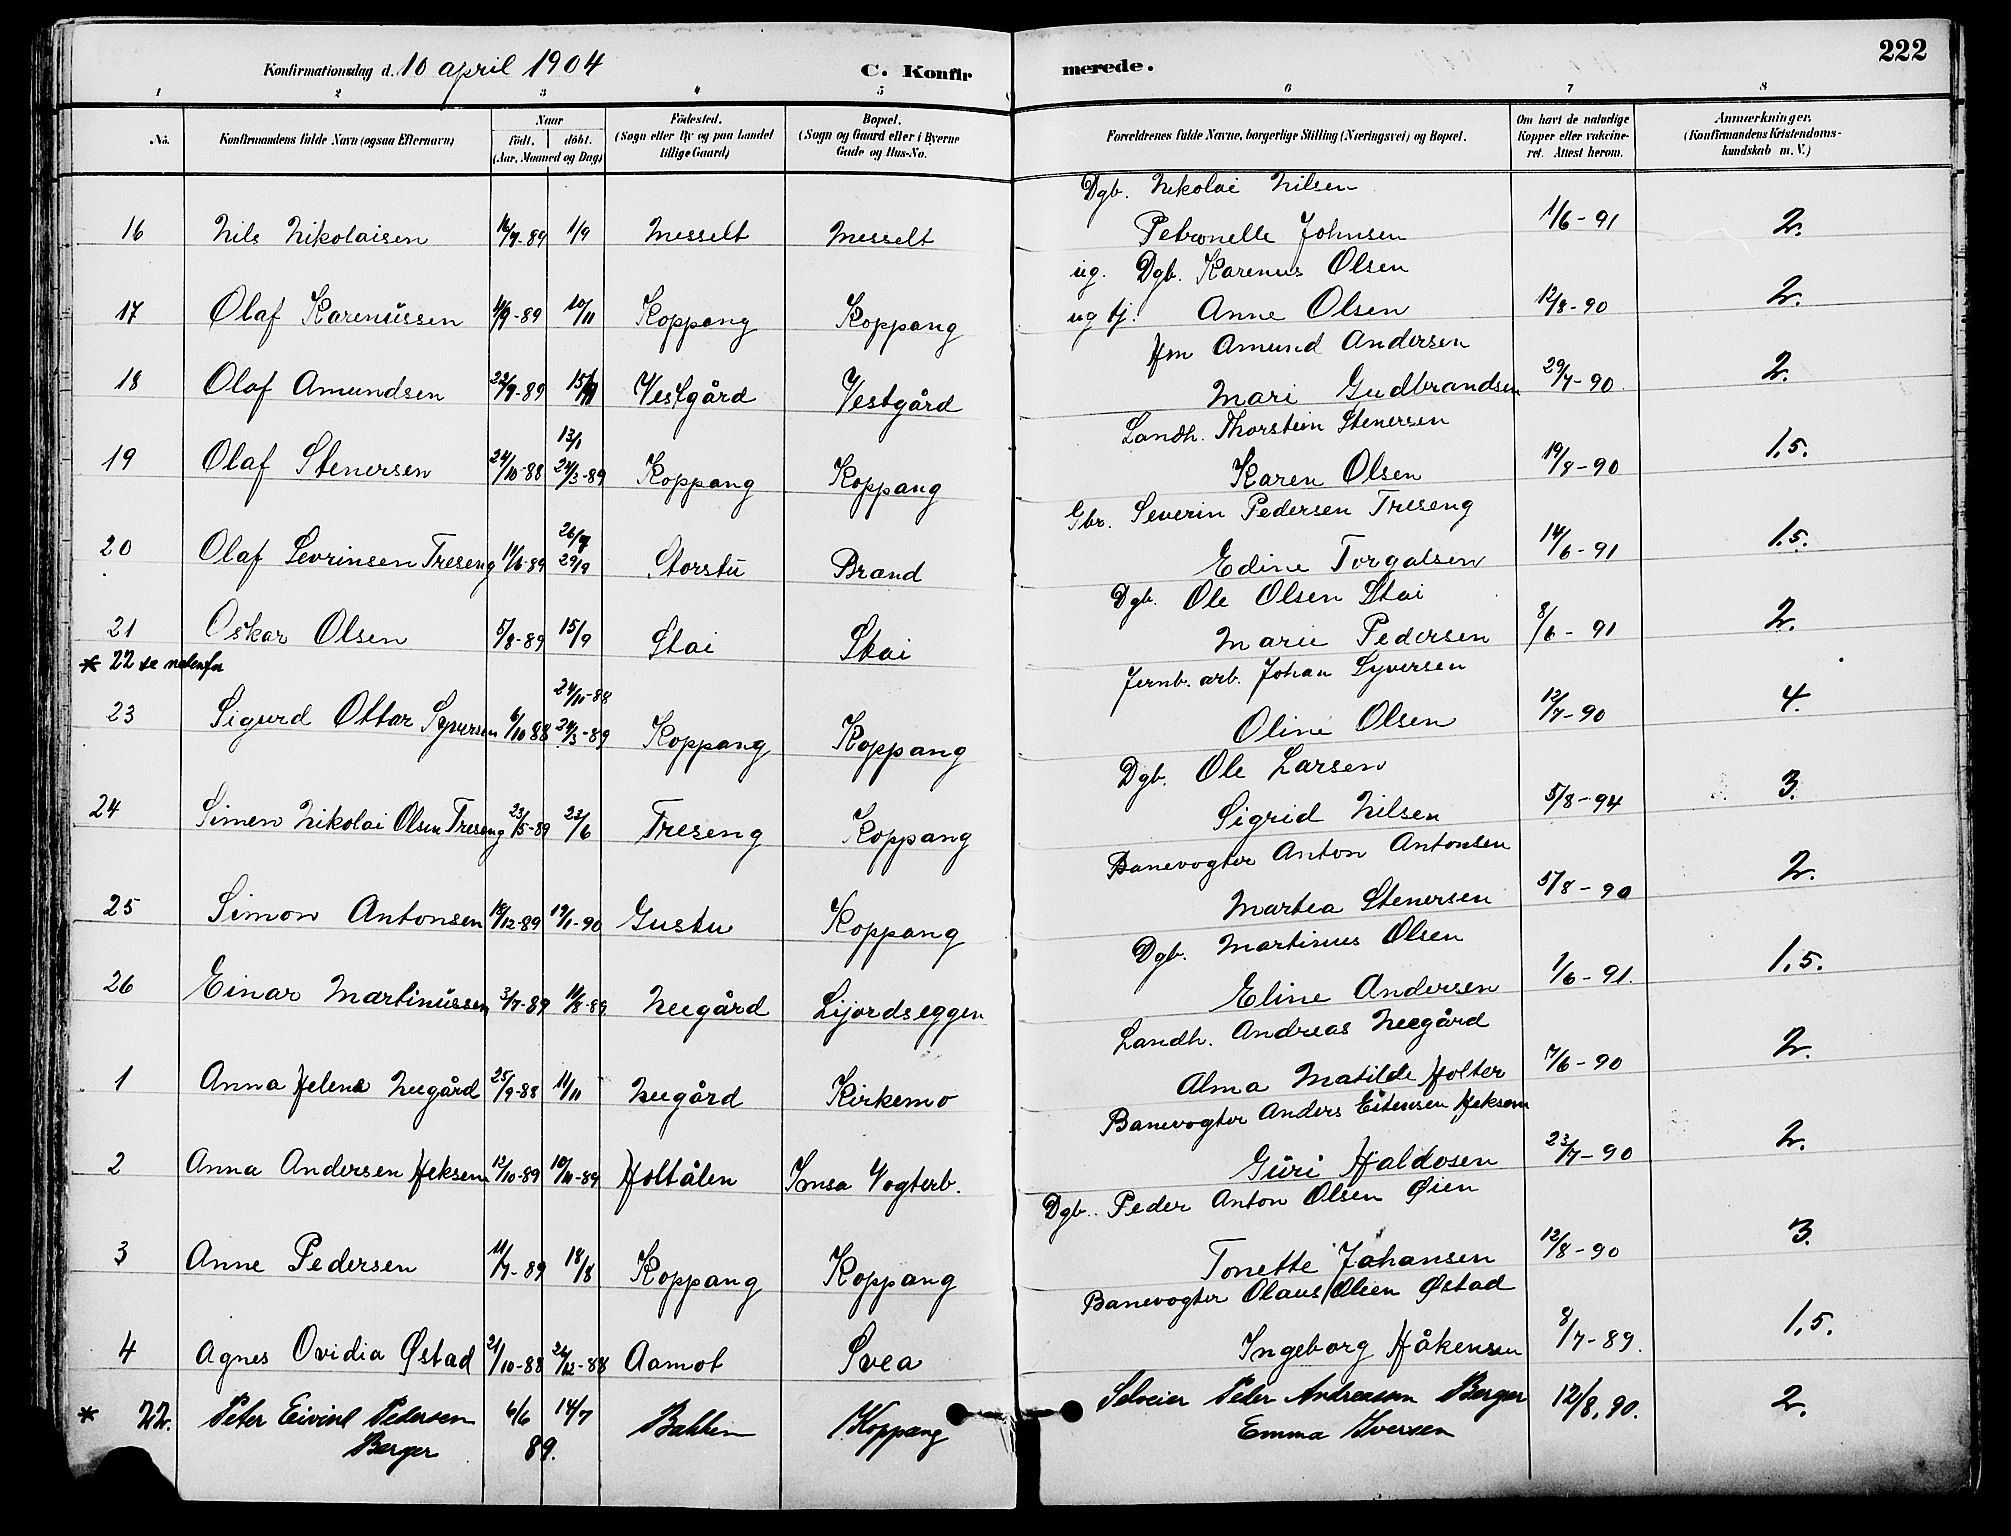 222
Konfirmationsdag d. 10 april 1904
C. Konfirmerede.
1 2 3 4 5 6 7 8
No. Konfirmandens fulde Navn (ogsaa Efternavn) Naar født, døbt. (Aar, Maaned og Dag) Fødested. (Sogn eller By og paa Landet tillige Gaard) Bopæl. (Sogn og Gaard eller i Byerne Gade og Hus-No. Forældrenes fulde Navne, borgerlige Stilling (Næringsvei) og Bopæl. Om havt de naturlige Kopper eller vakcineret. Attest herom. Anmærkninger. (Konfirmandens Kristendomskundskab m. V.)
Dgb. Nikolai Nilsen
16 Nils Nikolaisen -89 1/9 Messelt Messelt Petronelle Johnsen 1/6-91 2.
ug. Dgb. Karenus Olsen
17 Olaf Karenussen -89 10/11 Koppang Koppang ug tj. Anne Olsen 12/8-90 2.
Hm Amund Andersen
18 Olaf Amundsen 22/9-89 Vestgård Vestgård Mari Gudbrandsen 29/7-90 2.
13/1 Landh. Thorstein Stenersen
19 Olaf Stenersen 24/10-88 24/3-89 Koppang Koppang Karen Olsen 19/8-90 1,5.
Gbr. Severin Pedersen Treseng
20 Olaf Sevrinsen Treseng 11/6-89 29/9 Storstu Brand Edine Torgalsen 14/6-91 1.5.
Dgb. Ole Olsen Stai
21 Oskar Olsen 5/8-89 15/9 Stai Stai Marie Pedersen 8/6-91 2.
* 22 se nedenfor Jernb. arb. Johan Syversen
24/11-88
23 Sigurd Ottar Syversen 6/10 88 24/3-89 Koppang Koppang Oline Olsen 12/7-90 4.
Dgb. Ole Larsen
24 Simen Nikolai Olsen Treseng 23/5-89 23/6 Treseng Koppang Sigrid Nilsen 5/8-94 3.
Banevogter Anton Antonsen
25 Simon Antonsen 18/12-89 19/1-90 Gustu Koppang Martea Stenersen 5/8-90 2.
Dgb. Martinus Olsen
26 Einar Martinussen 3/7-89 11/8-89 Neegård Lijordseggen Eline Andersen 1/6-91. 1,5.
Landh. Andreas Neegård
1 Anna Helene Neegård 25/9-88 11/11 Neegård Kirkemo Alma Matilde Holter 7/6-90 2.
Banevogter Anders Estensen Heksem
2 Anna Andersen Heksem 12/10-89 10/11-89 Holtålen Imsa Vogterb. Guri Haldosen 23/7-90 2.
Dgb. Peder Anton Olsen Øien
3 Anne Pedersen 11/7-89 18/8 Koppang Koppang Tonette Johansen 12/8-90 3.
Banevogter Olaus Olsen Østad
4 Agnes Ovidia Østad 21/10-88 26/12-88 Aamot Svea Ingeborg Håkensen 8/7-89. 1,5.
* 22. Peter Eivind Pedersen 6/6 14/7 Bakken Koppang Selveier Peter Andreassen Berger 12/8.90. 2.
Berger 89. Emma Iversen